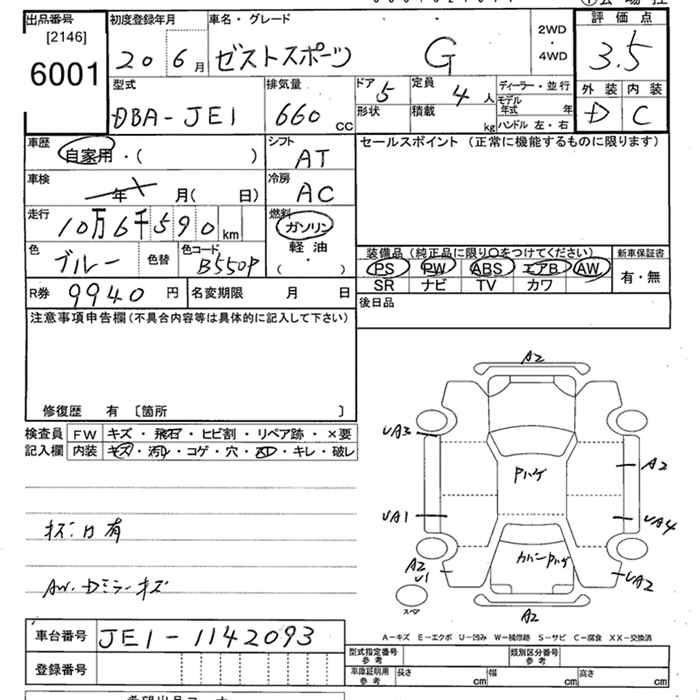 出品番号
[2146]
6001
初度登録年月
20 6月
車名・グレード
ゼストスポーツ G
2WD
・
4WD
評価点
3.5
外装 内装
D C
型式
DBA-JE1
排気量
660 CC
ドア 5
形状
定員 4 人
積載 kg
ディーラー・並行
モデル年式 年
ハンドル 左・右
車歴
自家用・( )
シフト
AT
セールスポイント (正常に機能するものに限ります)
車検
年 月( 日)
冷房
AC
走行
10万6千590km
燃料
ガソリン
軽油
( ・ )
色
ブルー
色替
色コード
B550P
装備品 (純正品に限り〇をつけてください)
PS PW ABS エアB AW
SR ナビ TV カワ
新車保証書
有・無
R券 9940円
名変期限 月 日
後日品
注意事項申告欄(不具合内容等は具体的に記入して下さい)
修復歴 有 〔箇所 〕
検査員
記入欄
FW キズ・飛石・ヒビ割・リペア跡・×要
内装 キズ・汚れ・コゲ・穴・凹・キレ・破レ
AW・Dミラーキズ
A2
UA3
A2
Pハゲ
UA1
UA4
カバーPハゲ
A2
U1
UA2
スペア
A2
A－キズ E－エクボ U－凹み W－補修跡 S－サビ C－腐食 XX－交換済
車台番号
JE1-1142093
登録番号
型式指定番号
参考
類別区分番号
参考
車庫証明用
参考
長さ cm
幅 cm
高さ cm